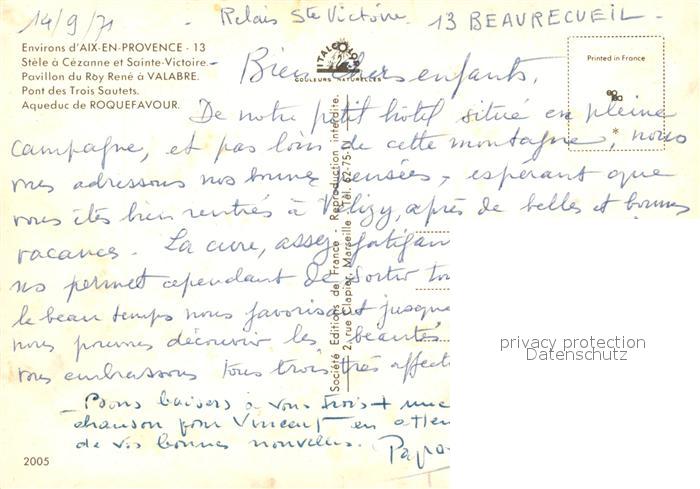 14/9/71 - Relais Ste Victoire. 13 BEAURECUEIL -
Environs d'AIX-EN-PROVENCE - 13
Stèle à Cézanne et Sainte-Victoire.
Pavillon du Roy René à VALABRE.
Pont des Trois Sautets.
Aqueduc de ROQUEFAVOUR.
ITALCOLOR
COULEURS NATURELLES
Printed in France
Société Editions de France - Reproduction interdite.
2, rue Clapier, Marseille - Tél. 62-75-
- Bien chers enfants,
De notre petit hôtel situé en pleine
campagne, et pas loin de cette montagne, nous
vous adressons nos bonnes pensées, espérant que
vous êtes bien rentrés à Vélizy, après de belles et bonnes
vacances. La cure, assez fatigan
ns permet cependant de sortir to
le beau temps nous favorisant jusque
nous pouvons découvrir les beautés
vous embrassons tous trois très affect
- Bons baisers à vous trois + une
chanson pour Vincent en atten
de vos bonnes nouvelles. Papa
2005
privacy protection
Datenschutz